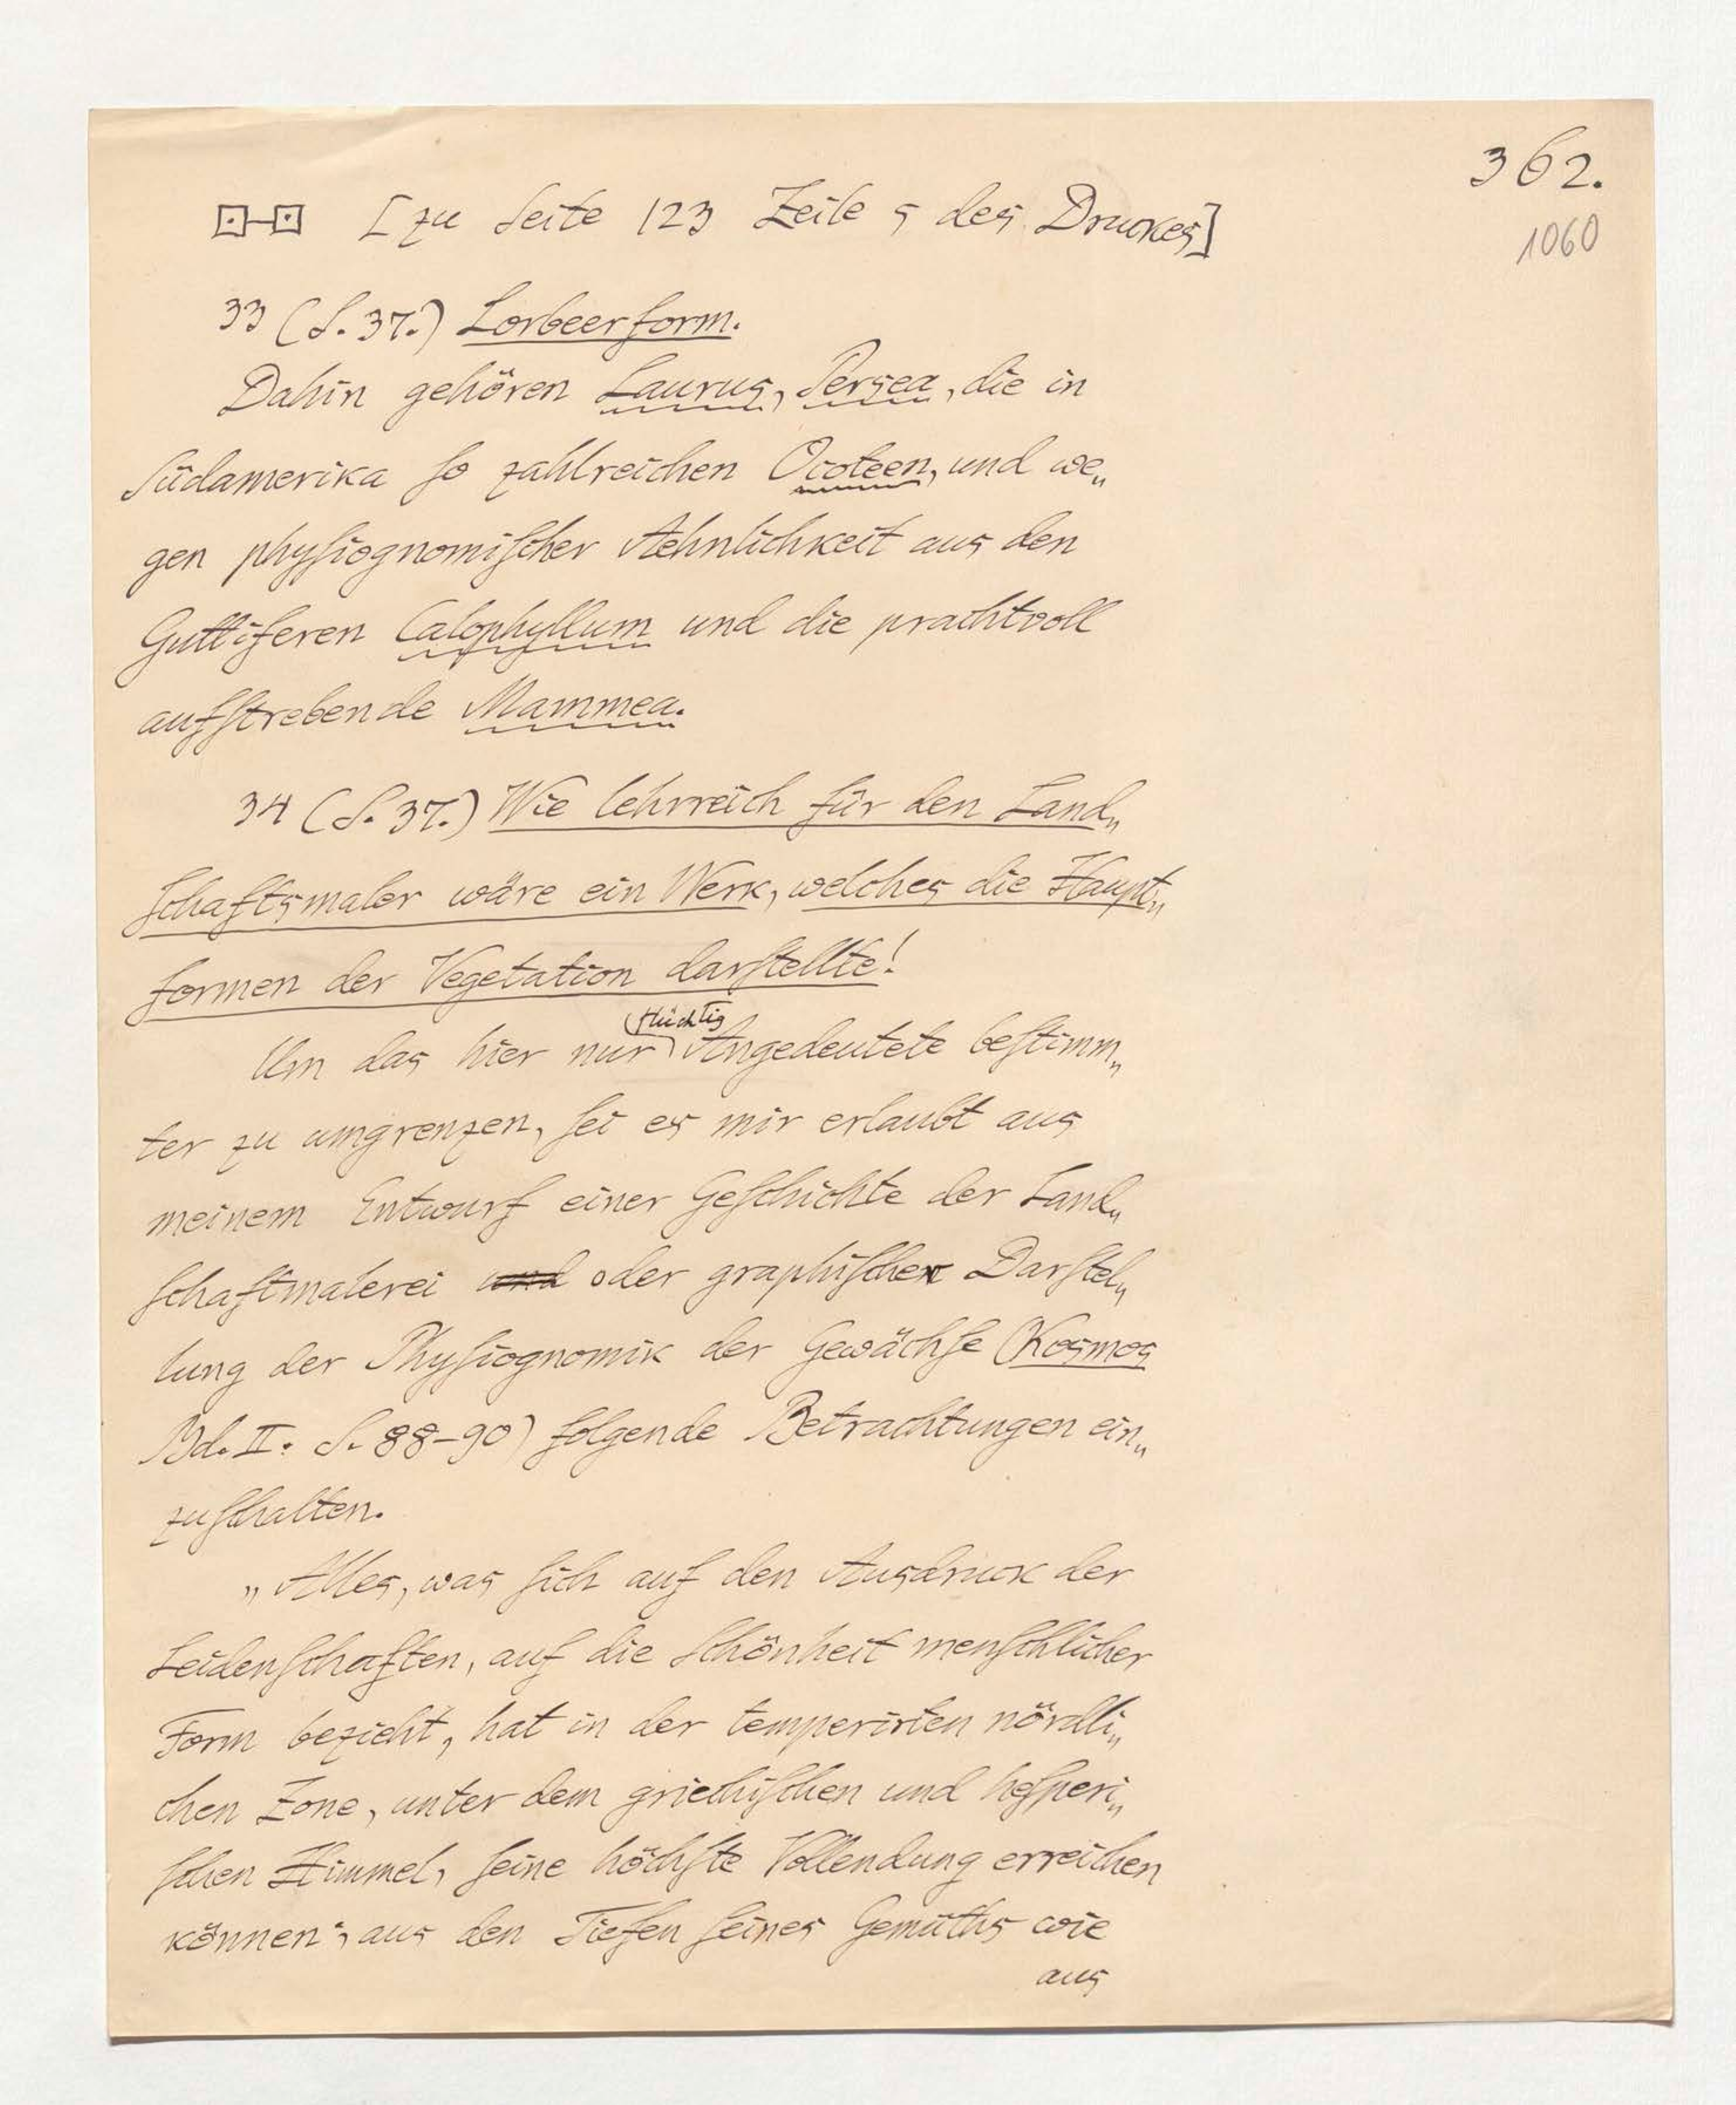 362.
1060
[zu Seite 123 Zeile 5 des Druckes]
33 (S. 37.) Lorbeerform.
Dahin gehören Laurus, Persea, die in
Südamerika so zahlreichen Ocoteen, und we„
gen physiognomischer Aehnlichkeit aus den
Guttiferen Calophyllum und die prachtvoll
aufstrebende Mammea.
34 (S. 37.) Wie lehrreich für den Land„
schaftsmaler wäre ein Werk, welches die Haupt„
formen der Vegetation darstellte!
flüchtig
Um das hier nur Angedeutete bestimm„
ter zu umgrenzen, sei es mir erlaubt aus
meinem Entwurf einer Geschichte der Land„
schaftmalerei und oder graphischer Darstel„
lung der Physiognomik der Gewächse (Kosmos
Bd. II. S. 88-90) folgende Betrachtungen ein„
zuschalten.
„Alles, was sich auf den Ausdruck der
Leidenschaften, auf die Schönheit menschlicher
Form bezieht, hat in der temperirten nördli„
chen Zone, unter dem griechischen und hesperi„
schen Himmel, seine höchste Vollendung erreichen
können; aus den Tiefen seines Gemüths wie
aus